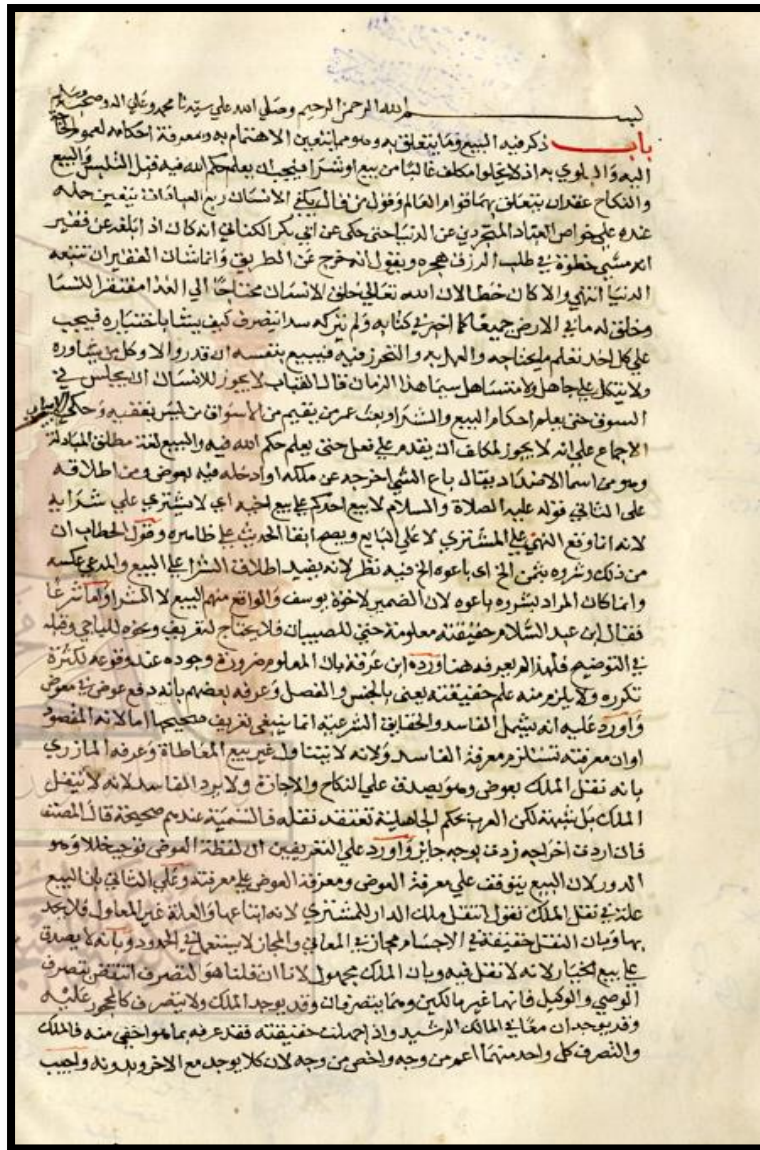 بسم الله الرحمن الرحيم وصلي الله علي سيدنا محمد وعلي اله وصحبه وسلم
باب ذكر فيه البيع وما يتعلق به وهو مما يتعين الاهتمام به ومعرفة احكامه لعموم الحاجة
اليه والبلوي به اذ لا يخلوا مكلف غالبا من بيع او شرا فيجب ان يعلم حكم الله فيه قبل التلبس والبيع
والنكاح عقدان يتعلق بهما قوام العالم وقول من قال يكفي الانسان ربع العبادات فيتعين حمله
عنده علي خواص العباد المتجردين عن الدنيا حتي حكي عن ابي بكر الكتاني انه كان اذا بلغه عن فقير
انه مشي خطوة في طلب الرزق هجره ويقول انه خرج عن الطريق وانما شان الفقير ان تتبعه
الدنيا انتهي والا كان خطا لان الله تعالي خلق الانسان محتاجا الي الغذا مفتقرا للنسا
وخلق له ما في الارض جميعا كما اخبر في كتابه ولم يتركه سدا يتصرف كيف يشا باختياره فيجب
علي كل احد تعلم ما يحتاجه والعمل به والتحرز فيه فيبيع بنفسه ان قدر والا وكل من يشاوره
ولا يتكل علي جاهل ولا متساهل سيما هذا الزمان قال القباب لا يجوز للانسان ان يجلس في
السوق حتي يعلم احكام البيع والشرا وبعث عمر من يقيم من الاسواق من ليس بفقيه وحكي
الاجماع علي انه لا يجوز لمكلف ان يقدم علي فعل حتي يعلم حكم الله فيه والبيع لغة مطلق المبادلة
وهو من اسما الاضداد يقال باع الشي اخرجه عن ملكه او ادخله فيه بعوض ومن اطلاقه
على الثاني قوله عليه الصلاة والسلام لا يبع احدكم علي بيع اخيه اي لا يشتري علي شرايه
لانه انما وقع النهي علي المشتري لا علي البايع ويصح ابقا الحديث علي ظاهره وقول الحطاب ان
من ذلك وشروه بثمن الخ اي باعوه الخ فيه نظر لانه يفيد اطلاق الشرا علي البيع والمدعي عكسه
وانما كان المراد بشروه باعوه لان الضمير لاخوة يوسف والواقع منهم البيع لا الشرا واما شرعا
فقال ابن عبد السلام حقيقته معلومة حتي للصبيان فلا يحتاج لتعريف ونحوه للباجي وقبله
في التوضيح فلهذا لم يعرفه هنا ورده ابن عرفة بان المعلوم ضرورة وجوده عند وقوعه لكثرة
تكرره ولا يلزم منه علم حقيقته يعني بالجنس والفصل وعرفه بعضهم بانه دفع عوض في معوض
واورد عليه انه يشمل الفاسد والحقايق الشرعية انما ينبغي تعريف صحيحها اما لانه المقصود
او ان معرفته تستلزم معرفة الفاسد ولانه لا يتناول غير بيع المعاطاة وعرفه المازري
بانه نقل الملك بعوض وهو يصدق علي النكاح والاجارة ولا يرد الفاسد لانه لا ينقل
الملك بل شبهته لكن العرب بحكم الجاهلية تعتقد نقله فالتسمية عندهم صحيحة قال المصنف
فان اردت اخراجه زدت بوجه جايز واورد علي التعريفين ان لفظة العوض توجب خللا وهو
الدور لان البيع يتوقف علي معرفة العوض ومعرفة العوض علي معرفته وعلي الثاني بان البيع
علة في نقل الملك تقول انتقل ملك الدار للمشتري لانه ابتاعها والعلة غير المعلول فلا يحد
بها وبان النقل حقيقة في الاجسام مجاز في المعاني والمجاز لا يستعمل في الحدود وبانه لا يصدق
علي بيع الخيار لانه لا نقل فيه وبان الملك مجهول لانا ان قلنا هو التصرف انتقض بتصرف
الوصي والوكيل فانهما غير مالكين وهما يتصرفان وقد يوجد الملك ولا يتصرف كالمحجور عليه
وقد يوجدان معا في المالك الرشيد واذا جهلت حقيقته فقد عرفه بما هو اخفي منه فالملك
والتصرف كل واحد منهما اعم من وجه واخص من وجه لان كلا يوجد مع الاخر وبدونه واجيب